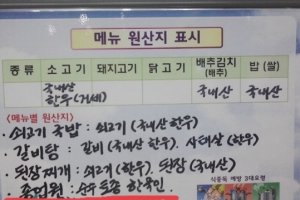 메뉴 원산지 표시
종류 소고기 돼지고기 닭고기 배추김치 (배추) 밥 (쌀)
국내산 한우(거세) 국내산 국내산
<메뉴별 원산지>
• 쇠고기 국밥 : 쇠고기 (국내산 한우)
• 갈비탕 : 갈비 (국내산 한우), 사태살 (한우)
• 된장찌개 : 쇠고기 (한우), 된장 (국내산)
• 종업원 : 순수 토종 한국인
식중독 예방 3대요령